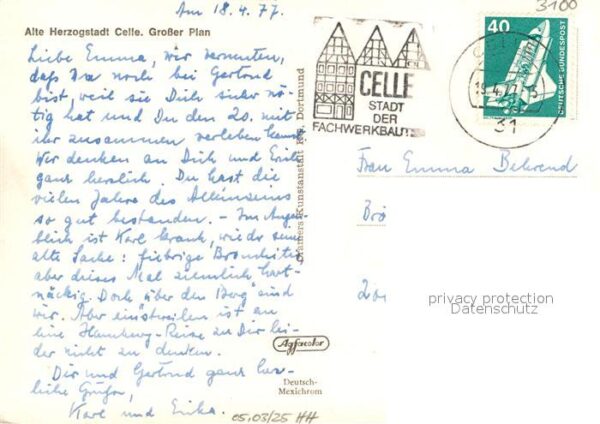 Am 18.4.77.
3100
Alte Herzogstadt Celle. Großer Plan
Liebe Emma, wir vermuten,
daß Du noch bei Gertrud
bist, weil sie Dich sicher nö-
tig hat und Du den 20. mit
ihr zusammen verleben kannst.
Wir denken an Dich und Erich
ganz herzlich. Du hast die
vielen Jahre des Alleinseins
so gut bestanden. – Im Augen-
blick ist Karl krank, wieder seine
alte Sache: fiebrige Bronchitis,
aber dieses Mal ziemlich hart-
näckig. Doch „über den Berg" sind
wir. Aber einstweilen ist an
eine Hamburg-Reise zu Dir lei-
der nicht zu denken.
Dir und Gertrud ganz herz-
liche Grüße,
Karl und Erika.
05.03/25 HH
Cramers Kunstanstalt KG, Dortmund
Agfacolor
Deutsch-
Mexichrom
CELLE
STADT
DER
FACHWERKBAUTEN
31
40
DEUTSCHE BUNDESPOST
Frau Emma Behrend
privacy protection
Datenschutz